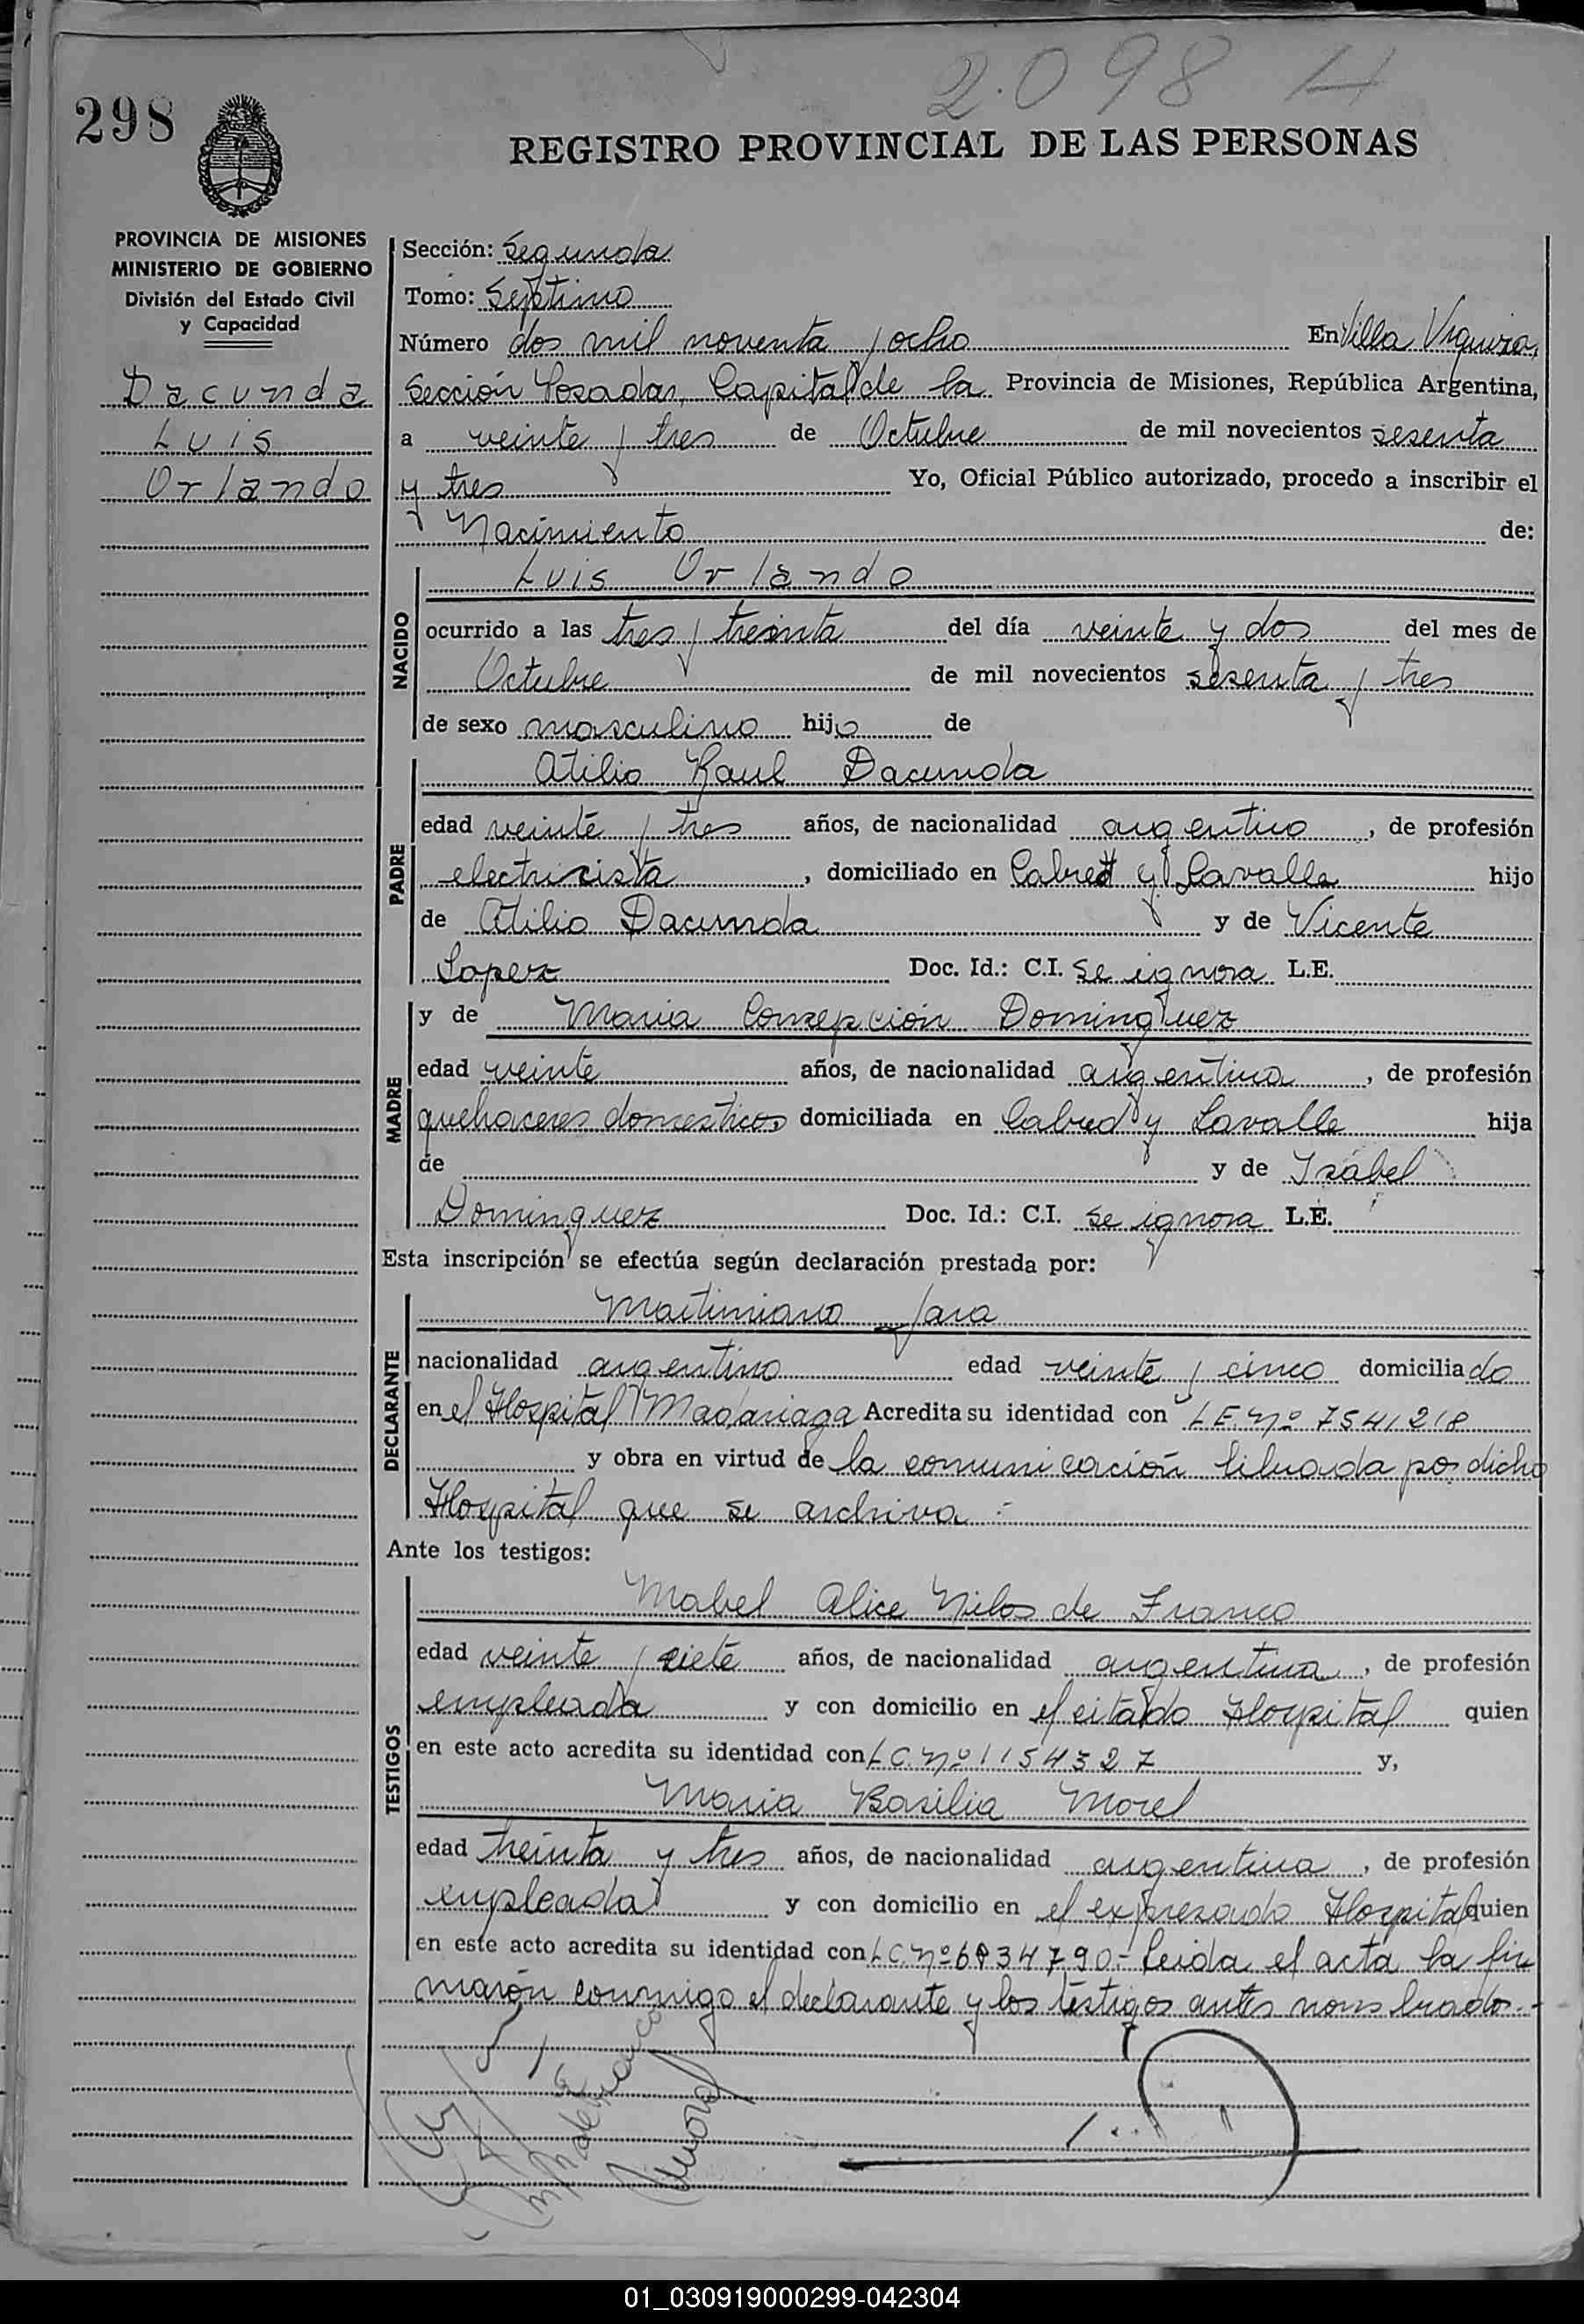 2098 H
298
REGISTRO PROVINCIAL DE LAS PERSONAS
PROVINCIA DE MISIONES
MINISTERIO DE GOBIERNO
División del Estado Civil
y Capacidad
Dacunda
Luis
Orlando
Sección: Segunda
Tomo: Septimo
Número dos mil noventa y ocho En Villa Urquiza,
Sección Posadas, Capital de la Provincia de Misiones, República Argentina,
a veinte y tres de Octubre de mil novecientos sesenta
y tres Yo, Oficial Público autorizado, procedo a inscribir el
Nacimiento de:
NACIDO
Luis Orlando
ocurrido a las tres y treinta del día veinte y dos del mes de
Octubre de mil novecientos sesenta y tres
de sexo masculino hijo de
PADRE
Atilio Raul Dacunda
edad veinte y tres años, de nacionalidad argentino, de profesión
electricista, domiciliado en Cabred y Lavalle hijo
de Atilio Dacunda y de Vicente
Lopez Doc. Id.: C.I. se ignora L.E.
MADRE
y de Maria Consepción Dominguez
edad veinte años, de nacionalidad argentina, de profesión
quehaceres domesticos domiciliada en Cabred y Lavalle hija
de y de Isabel
Dominguez Doc. Id.: C.I. se ignora L.E.
Esta inscripción se efectúa según declaración prestada por:
DECLARANTE
Martiniano Jara
nacionalidad argentino edad veinte y cinco domiciliado
en el Hospital Madariaga Acredita su identidad con L.E. Nº 7541218
y obra en virtud de la comunicación librada por dicho
Hospital que se archiva.-
Ante los testigos:
TESTIGOS
Mabel Alice de Franco
edad veinte y siete años, de nacionalidad argentina, de profesión
empleada y con domicilio en el citado Hospital quien
en este acto acredita su identidad con L.C. Nº 1154327 y,
Maria Basilia Morel
edad treinta y tres años, de nacionalidad argentina, de profesión
empleada y con domicilio en el expresado Hospital quien
en este acto acredita su identidad con L.C. Nº 6834790.- Leida el acta la fir
marón conmigo el declarante y los testigos antes nombrados.-
01_030919000299-042304